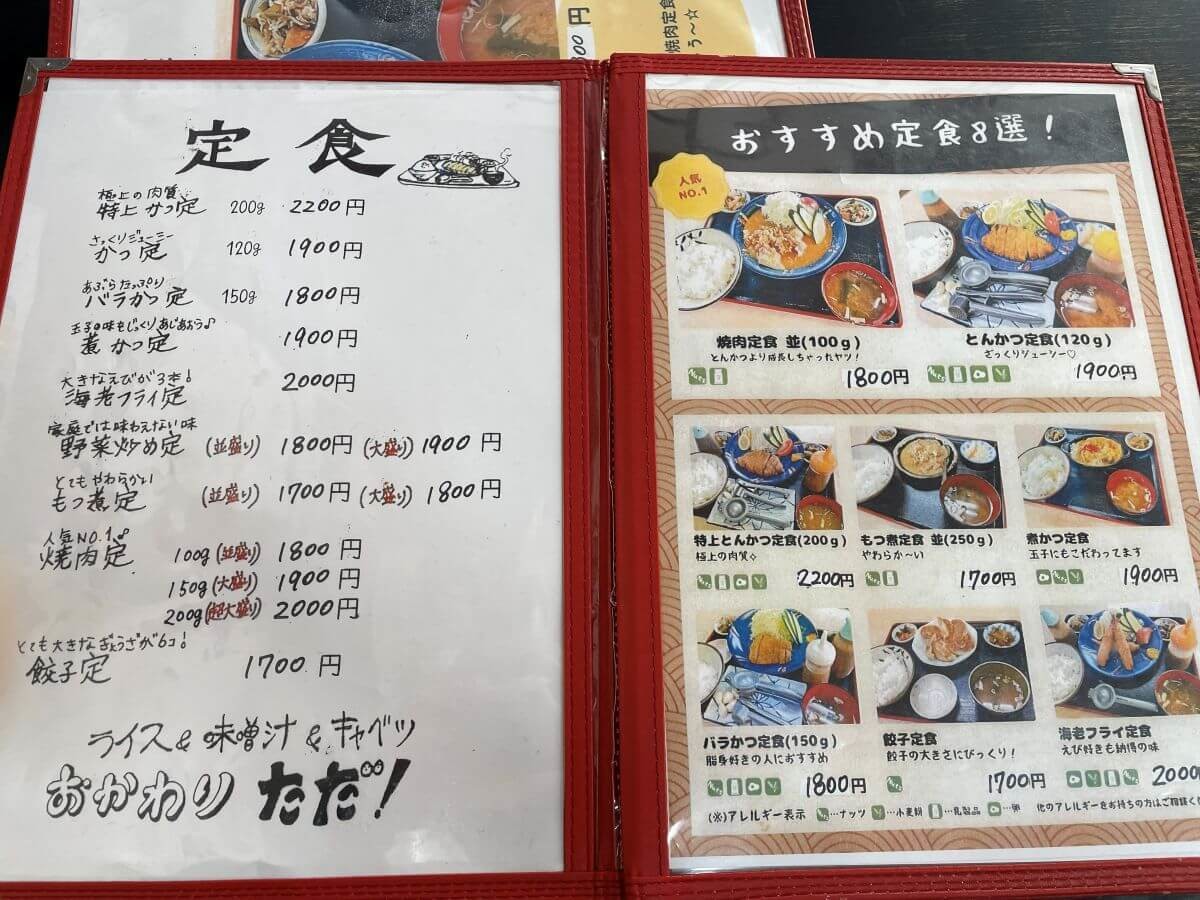 00円
焼肉定食
う〜☆
定食
極上の肉質
特上かつ定 200g 2200円
さっくりジューシー
かつ定 120g 1900円
あぶらたっぷり
バラかつ定 150g 1800円
玉子の味もじっくりあじあおう♪
煮かつ定 1900円
大きなえびが3本!
海老フライ定 2000円
家庭では味わえない味
野菜炒め定 (並盛り) 1800円 (大盛り) 1900円
とてもやわらかい
もつ煮定 (並盛り) 1700円 (大盛り) 1800円
人気NO.1
焼肉定 100g(並盛り) 1800円
150g(大盛り) 1900円
200g(超大盛り) 2000円
とても大きなぎょうざが6コ!
餃子定 1700円
ライス&味噌汁&キャベツ
おかわりただ!
おすすめ定食8選!
人気
NO.1
焼肉定食 並(100g)
とんかつより成長しちゃったヤツ!
1800円
とんかつ定食(120g)
ざっくりジューシー♡
1900円
特上とんかつ定食(200g)
極上の肉質✧
2200円
もつ煮定食 並(250g)
やわらか〜い
1700円
煮かつ定食
玉子にもこだわってます
1900円
バラかつ定食(150g)
脂身好きの人におすすめ
1800円
餃子定食
餃子の大きさにびっくり!
1700円
海老フライ定食
えび好きも納得の味
2000
(※)アレルギー表示 …ナッツ …小麦粉 …乳製品 …卵 他のアレルギーをお持ちの方はご相談く